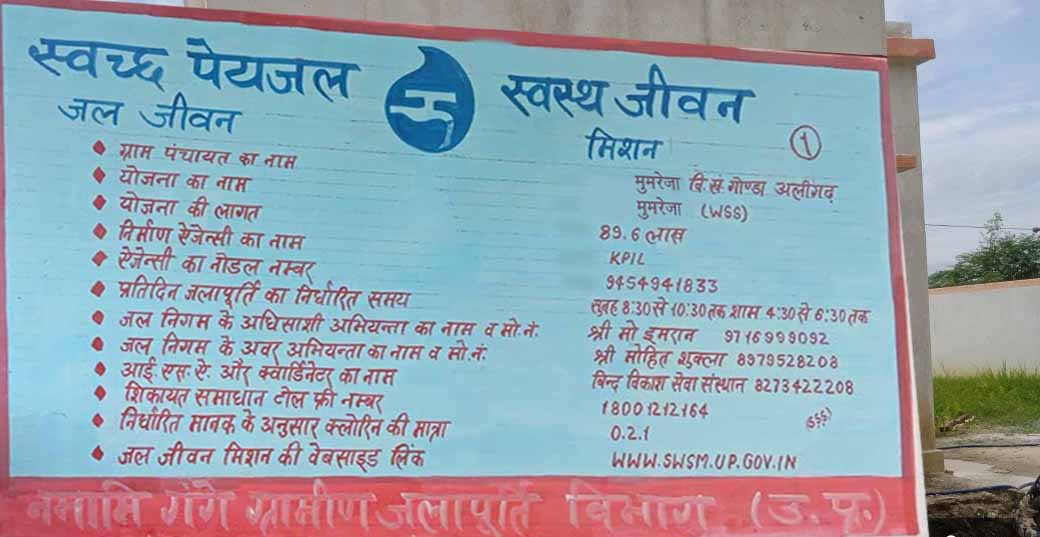 स्वच्छ पेयजल स्वस्थ जीवन
जल जीवन मिशन १
ग्राम पंचायत का नाम मुमरेजा वि.सं. गोण्डा अलीगढ़
योजना का नाम मुमरेजा (WSS)
योजना की लागत 89.6 लाख
निर्माण ऐजेन्सी का नाम KPIL
ऐजेन्सी का नोडल नम्बर 9454941833
प्रतिदिन जलापूर्ति का निर्धारित समय सुबह 8:30 से 10:30 तक शाम 4:30 से 6:30 तक
जल निगम के अधिसाशी अभियन्ता का नाम व मो.नं. श्री मो इमरान 9716999092
जल निगम के अवर अभियन्ता का नाम व मो.नं. श्री मोहित शुक्ला 8979528208
आई.एस.ऐ. और क्वार्डिनेटर का नाम बिन्द विकाश सेवा संस्थान 8273422208
शिकायत समाधान टोल फ्री नम्बर 18001212164
निर्धारित मानक के अनुसार क्लोरिन की मात्रा 0.2.1
जल जीवन मिशन की वेबसाइड लिंक WWW.SWSM.UP.GOV.IN
नमामि गंगे ग्रामीण जलापूर्ति विभाग (उ.प्र.)